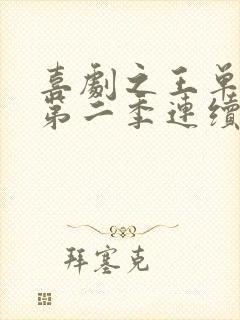 喜劇之王單
第二季連續
拜塞克